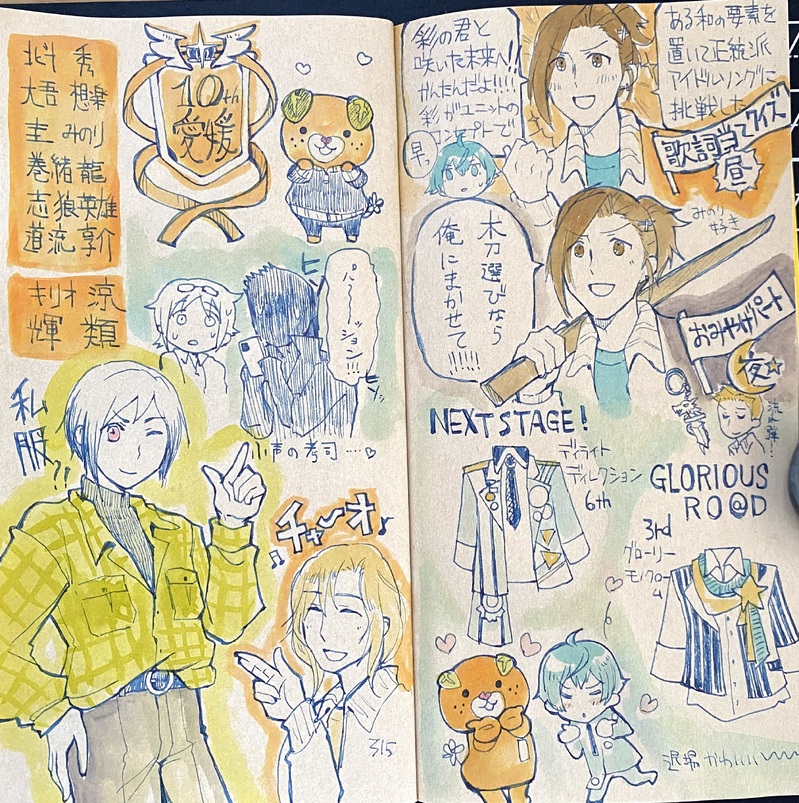 北斗 秀
大吾 想楽
圭 みのり
巻緒 龍
志狼 英雄
道流 享介
キリオ 涼
輝 類
10th
愛媛
パ〜ッション!!!
ヒソ
ヒソッ
小声の孝司……♡
私服?!
チャーオ♪
315
彩の君と
咲いた未来へ!!
かんたんだよ!!!!
彩がユニットの
コンセプトで
ある和の要素を
置いて正統派
アイドルソングに
挑戦した
早っ
歌詞当てクイズ
昼
木刀選びなら
俺にまかせて!!!!!
みのり
好き
おみやげパート
夜☆
NEXT STAGE!
ディライト
ディレクション
6th
GLORIOUS
RO@D
3rd
グローリー
モノクローム
退場かわいい